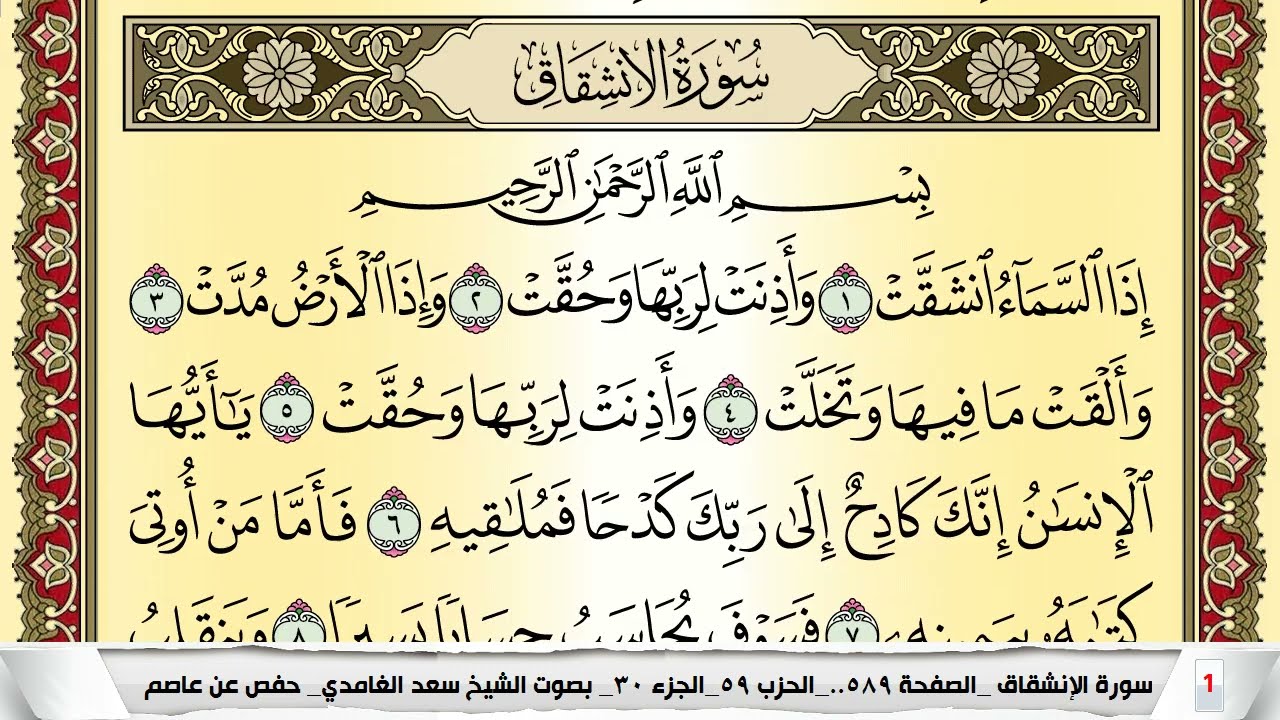 سُورَةُ الانشِقَاقِ
بِسْمِ ٱللَّهِ ٱلرَّحْمَٰنِ ٱلرَّحِيمِ
إِذَا ٱلسَّمَآءُ ٱنشَقَّتْ ١ وَأَذِنَتْ لِرَبِّهَا وَحُقَّتْ ٢ وَإِذَا ٱلْأَرْضُ مُدَّتْ ٣
وَأَلْقَتْ مَا فِيهَا وَتَخَلَّتْ ٤ وَأَذِنَتْ لِرَبِّهَا وَحُقَّتْ ٥ يَٰٓأَيُّهَا
ٱلْإِنسَٰنُ إِنَّكَ كَادِحٌ إِلَىٰ رَبِّكَ كَدْحًا فَمُلَٰقِيهِ ٦ فَأَمَّا مَنْ أُوتِىَ
كِتَٰبَهُۥ بِيَمِينِهِۦ ٧ فَسَوْفَ يُحَاسَبُ حِسَابًا يَسِيرًا ٨ وَيَنقَلِبُ
سورة الإنشقاق _الصفحة ٥٨٩.._الحزب ٥٩_الجزء ٣٠_ بصوت الشيخ سعد الغامدي_ حفص عن عاصم
1